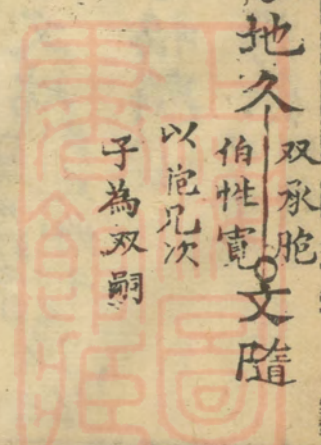 地久
双承胞
伯性寬
以胞兄次
子為双嗣
文隨